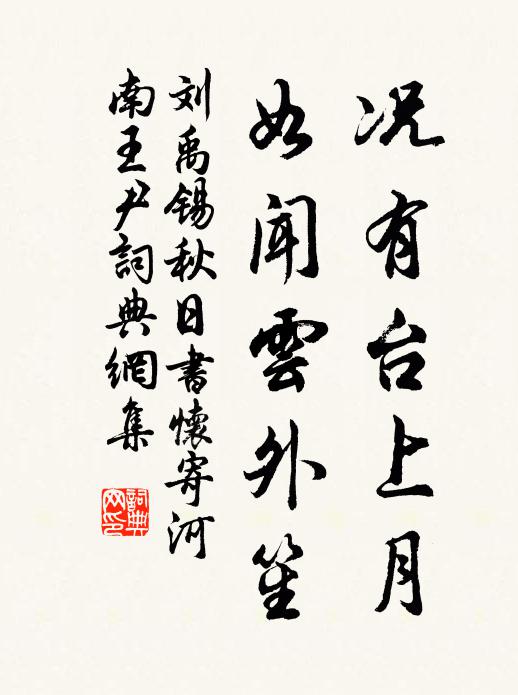 况有台上月
如闻雲外笙
刘禹锡秋日書懷寄河
南王尹詞典網集
詞典网印